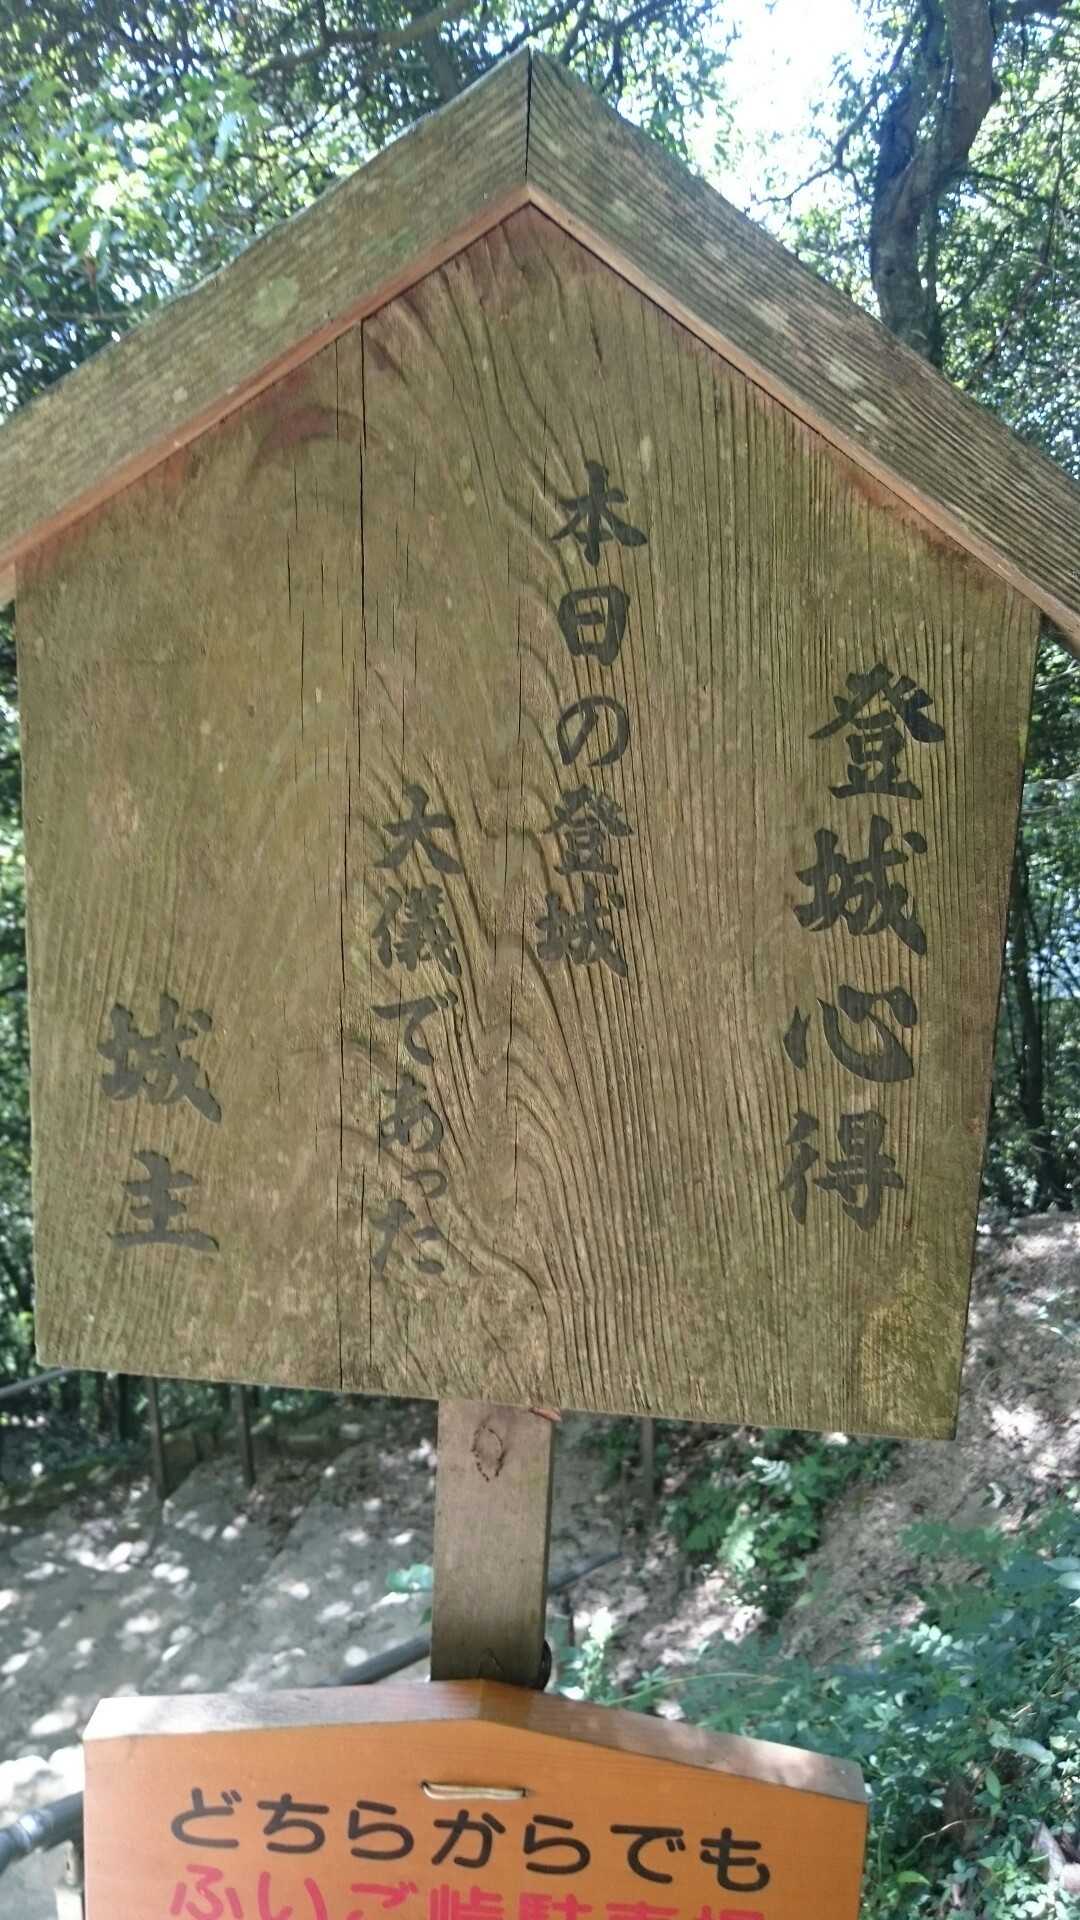 登城心得
本日の登城
大儀であった
城主
どちらからでも
ふいご峠駐車場